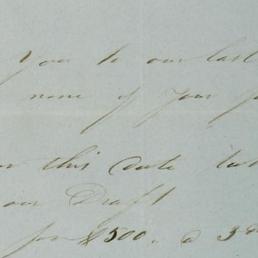 you to our last
none of your
this date
our Draft
for $500. @ 3